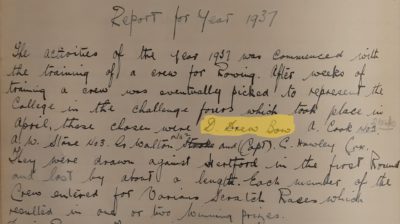 Report for Year 1937
The activities of the year 1937 was commenced with
the training of a crew for Rowing. After weeks of
training a crew was eventually picked to represent the
College in the challenge fours which took place in
April, those chosen were D. Drew Bow. A. Cook No 2.
A. W. Stone No 3. G. Walton Stroke and (Capt) C. Hawley Cox.
They were drawn against Hertford in the first Round
and lost by about a length. Each member of the
Crew entered for Various Scratch Races which
resulted in one or two winning prizes.